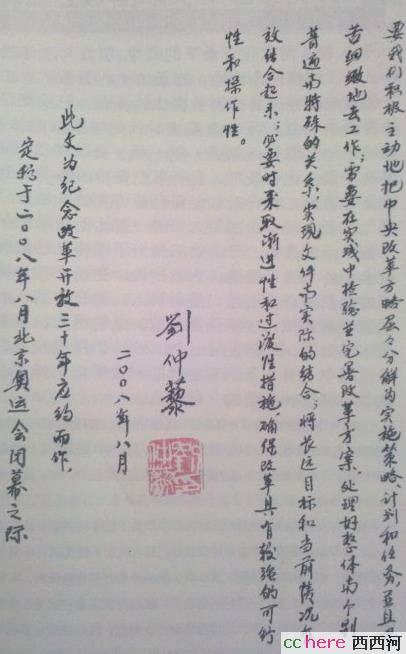 要我们积极主动地把中央改革方略层々分解为实施策略计划和任务,並且
苦细緻地去工作;需要在实践中检验並完善改革方案、处理好整体与个别
普遍与特殊的关系;实现文件与实际的结合;将长远目标和当前情况
放结合起来;必要时采取渐进性和过渡性措施,确保改革具有较强的可行
性和操作性。
劉仲藜
二〇〇八年八月
此文为纪念改革开放三十年应约而作,
定稿于二〇〇八年八月北京奥运会闭幕之际
cchere 西西河